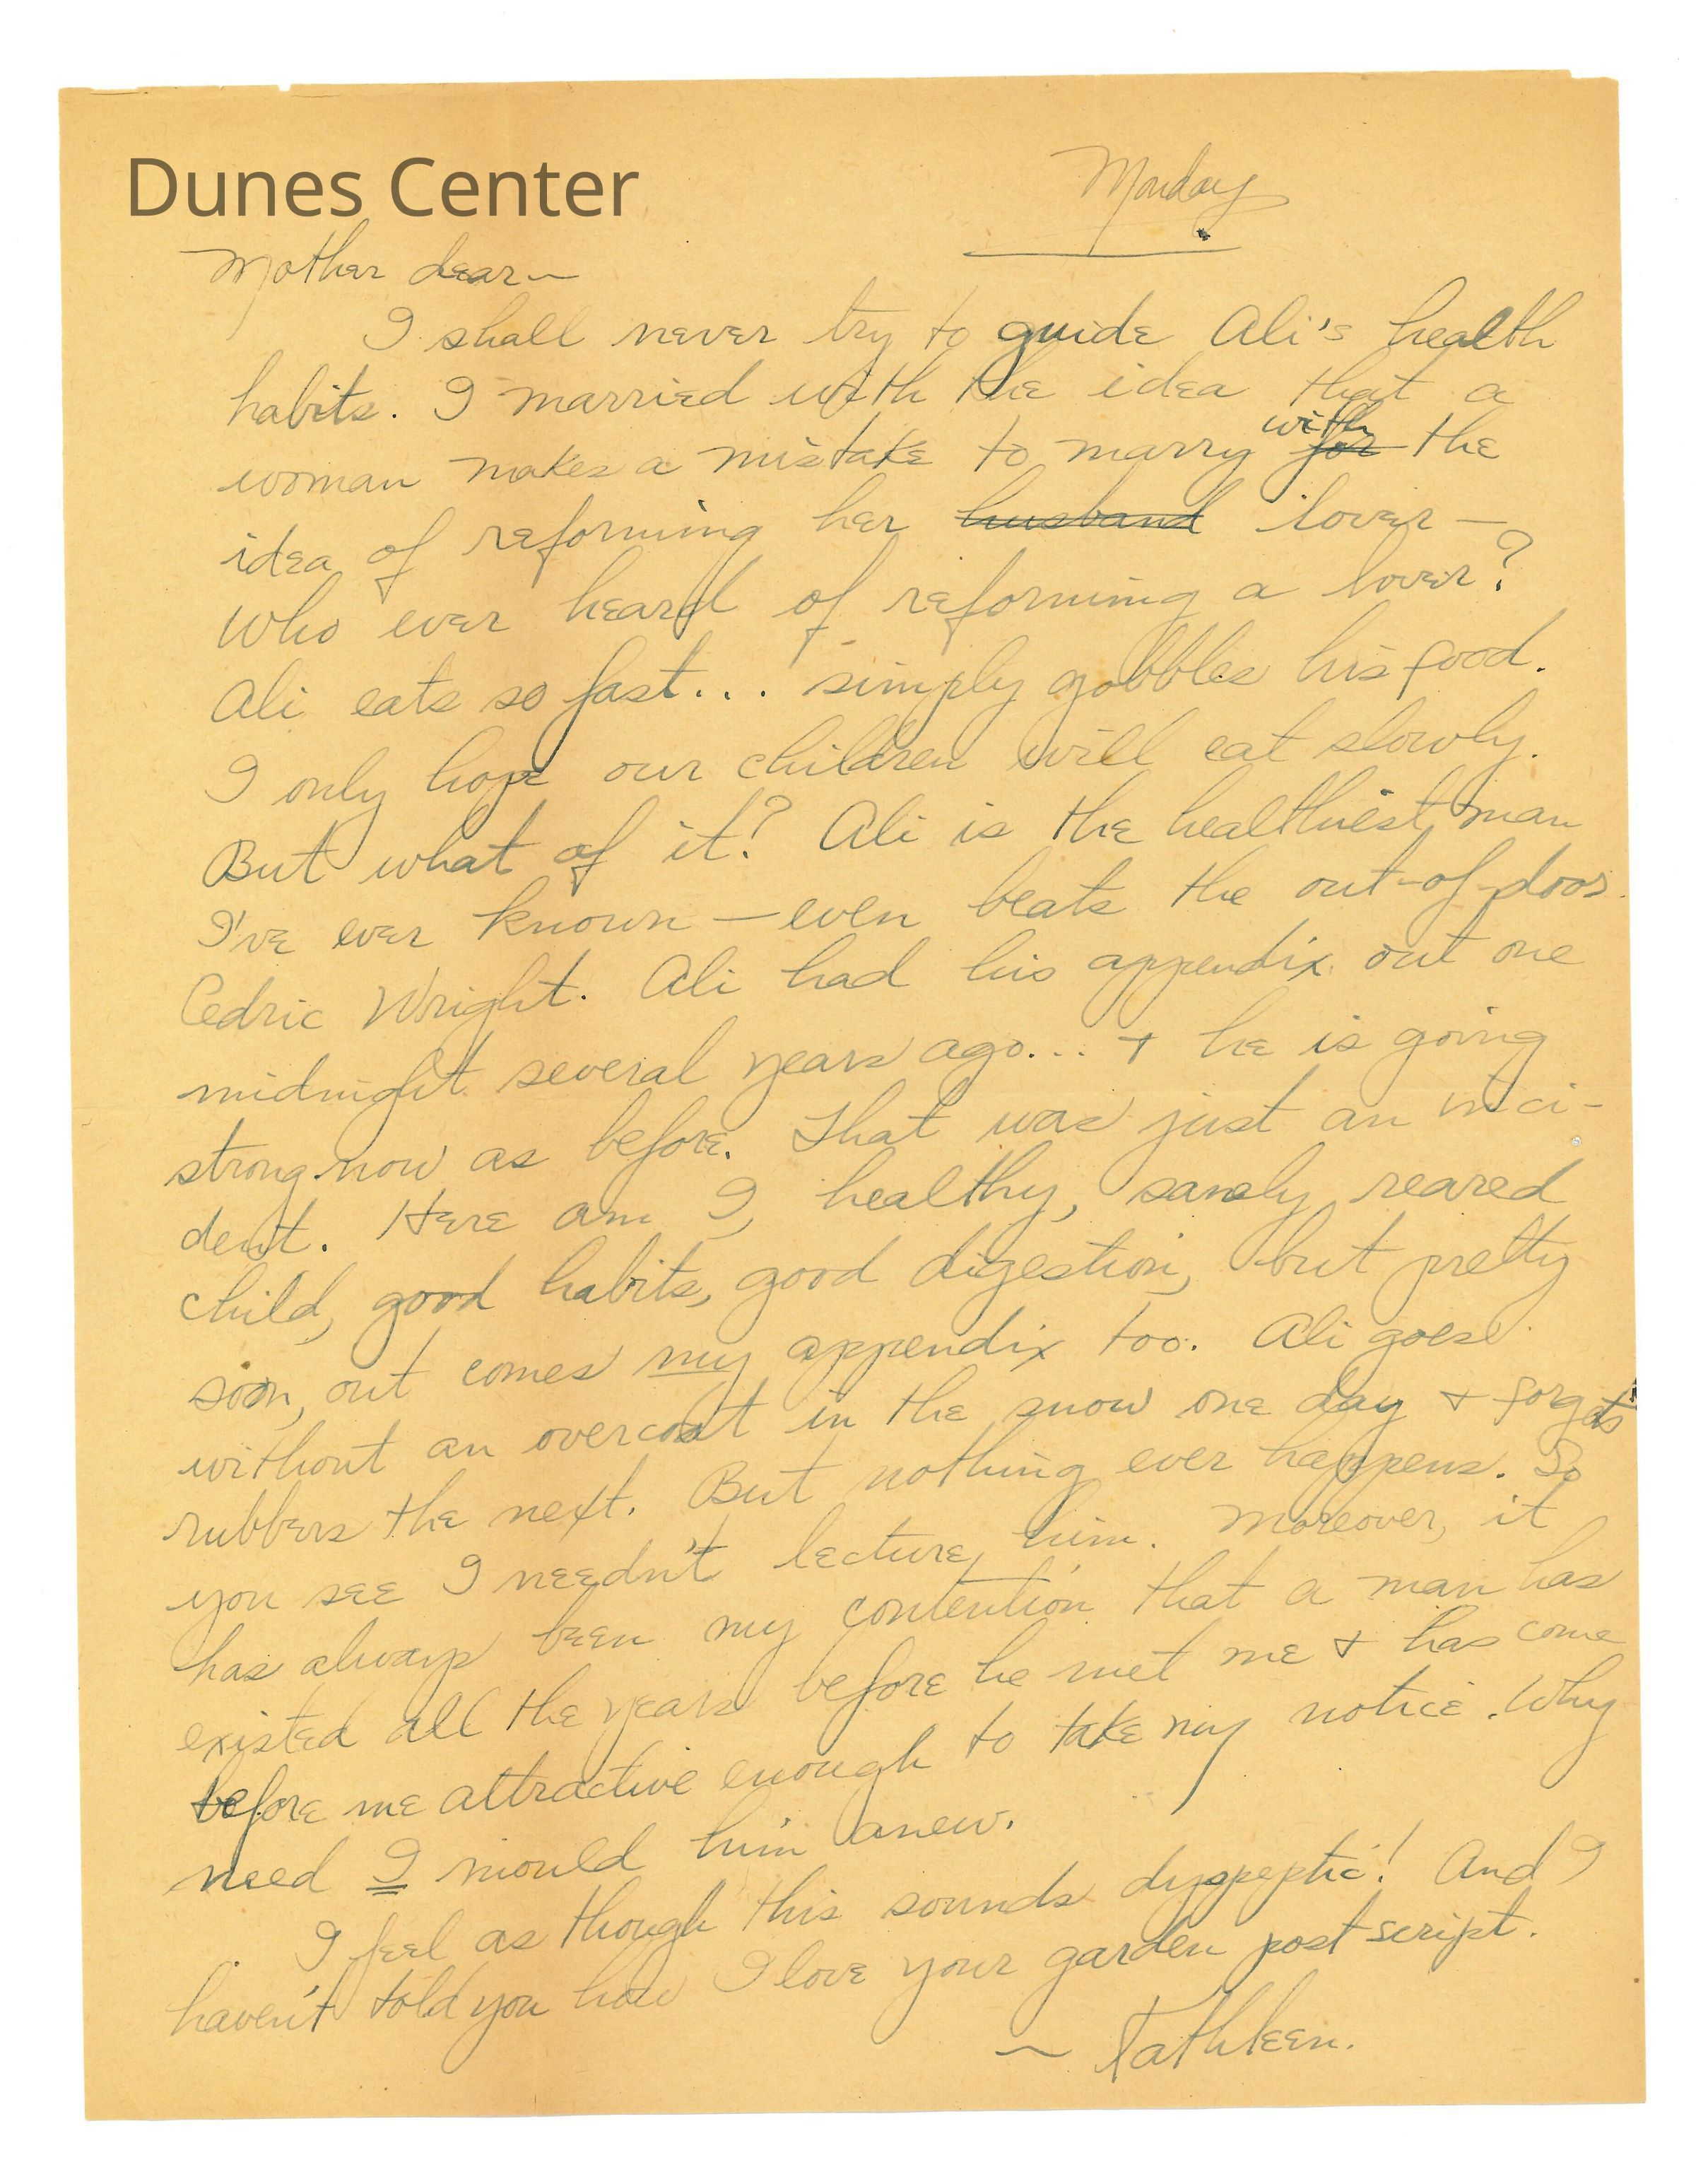 Dunes Center
Monday
Mother dear~
I shall never try to guide Ali's health
habits. I married with the idea that a
woman makes a mistake to marry with for the
idea of reforming her husband lover—
Who ever heard of reforming a lover?
Ali eats so fast... simply gobbles his food.
I only hope our children will eat slowly.
But what of it? Ali is the healthiest man
I've ever known — even beats the out-of-doors
Cedric Wright. Ali had his appendix out one
midnight several years ago... + he is going
strong now as before. That was just an inci-
dent. Here am I, healthy, sanely reared
child, good habits, good digestion, but pretty
soon, out comes my appendix too. Ali goes
without an overcoat in the snow one day + forgets
rubbers the next. But nothing ever happens. So
you see I needn't lecture him. Moreover, it
has always been my contention that a man has
existed all the years before he met me + has come
before me attractive enough to take my notice. Why
need I mould him anew.
I feel as though this sounds dyspeptic! And I
haven't told you how I love your garden post script.
~ Kathleen.